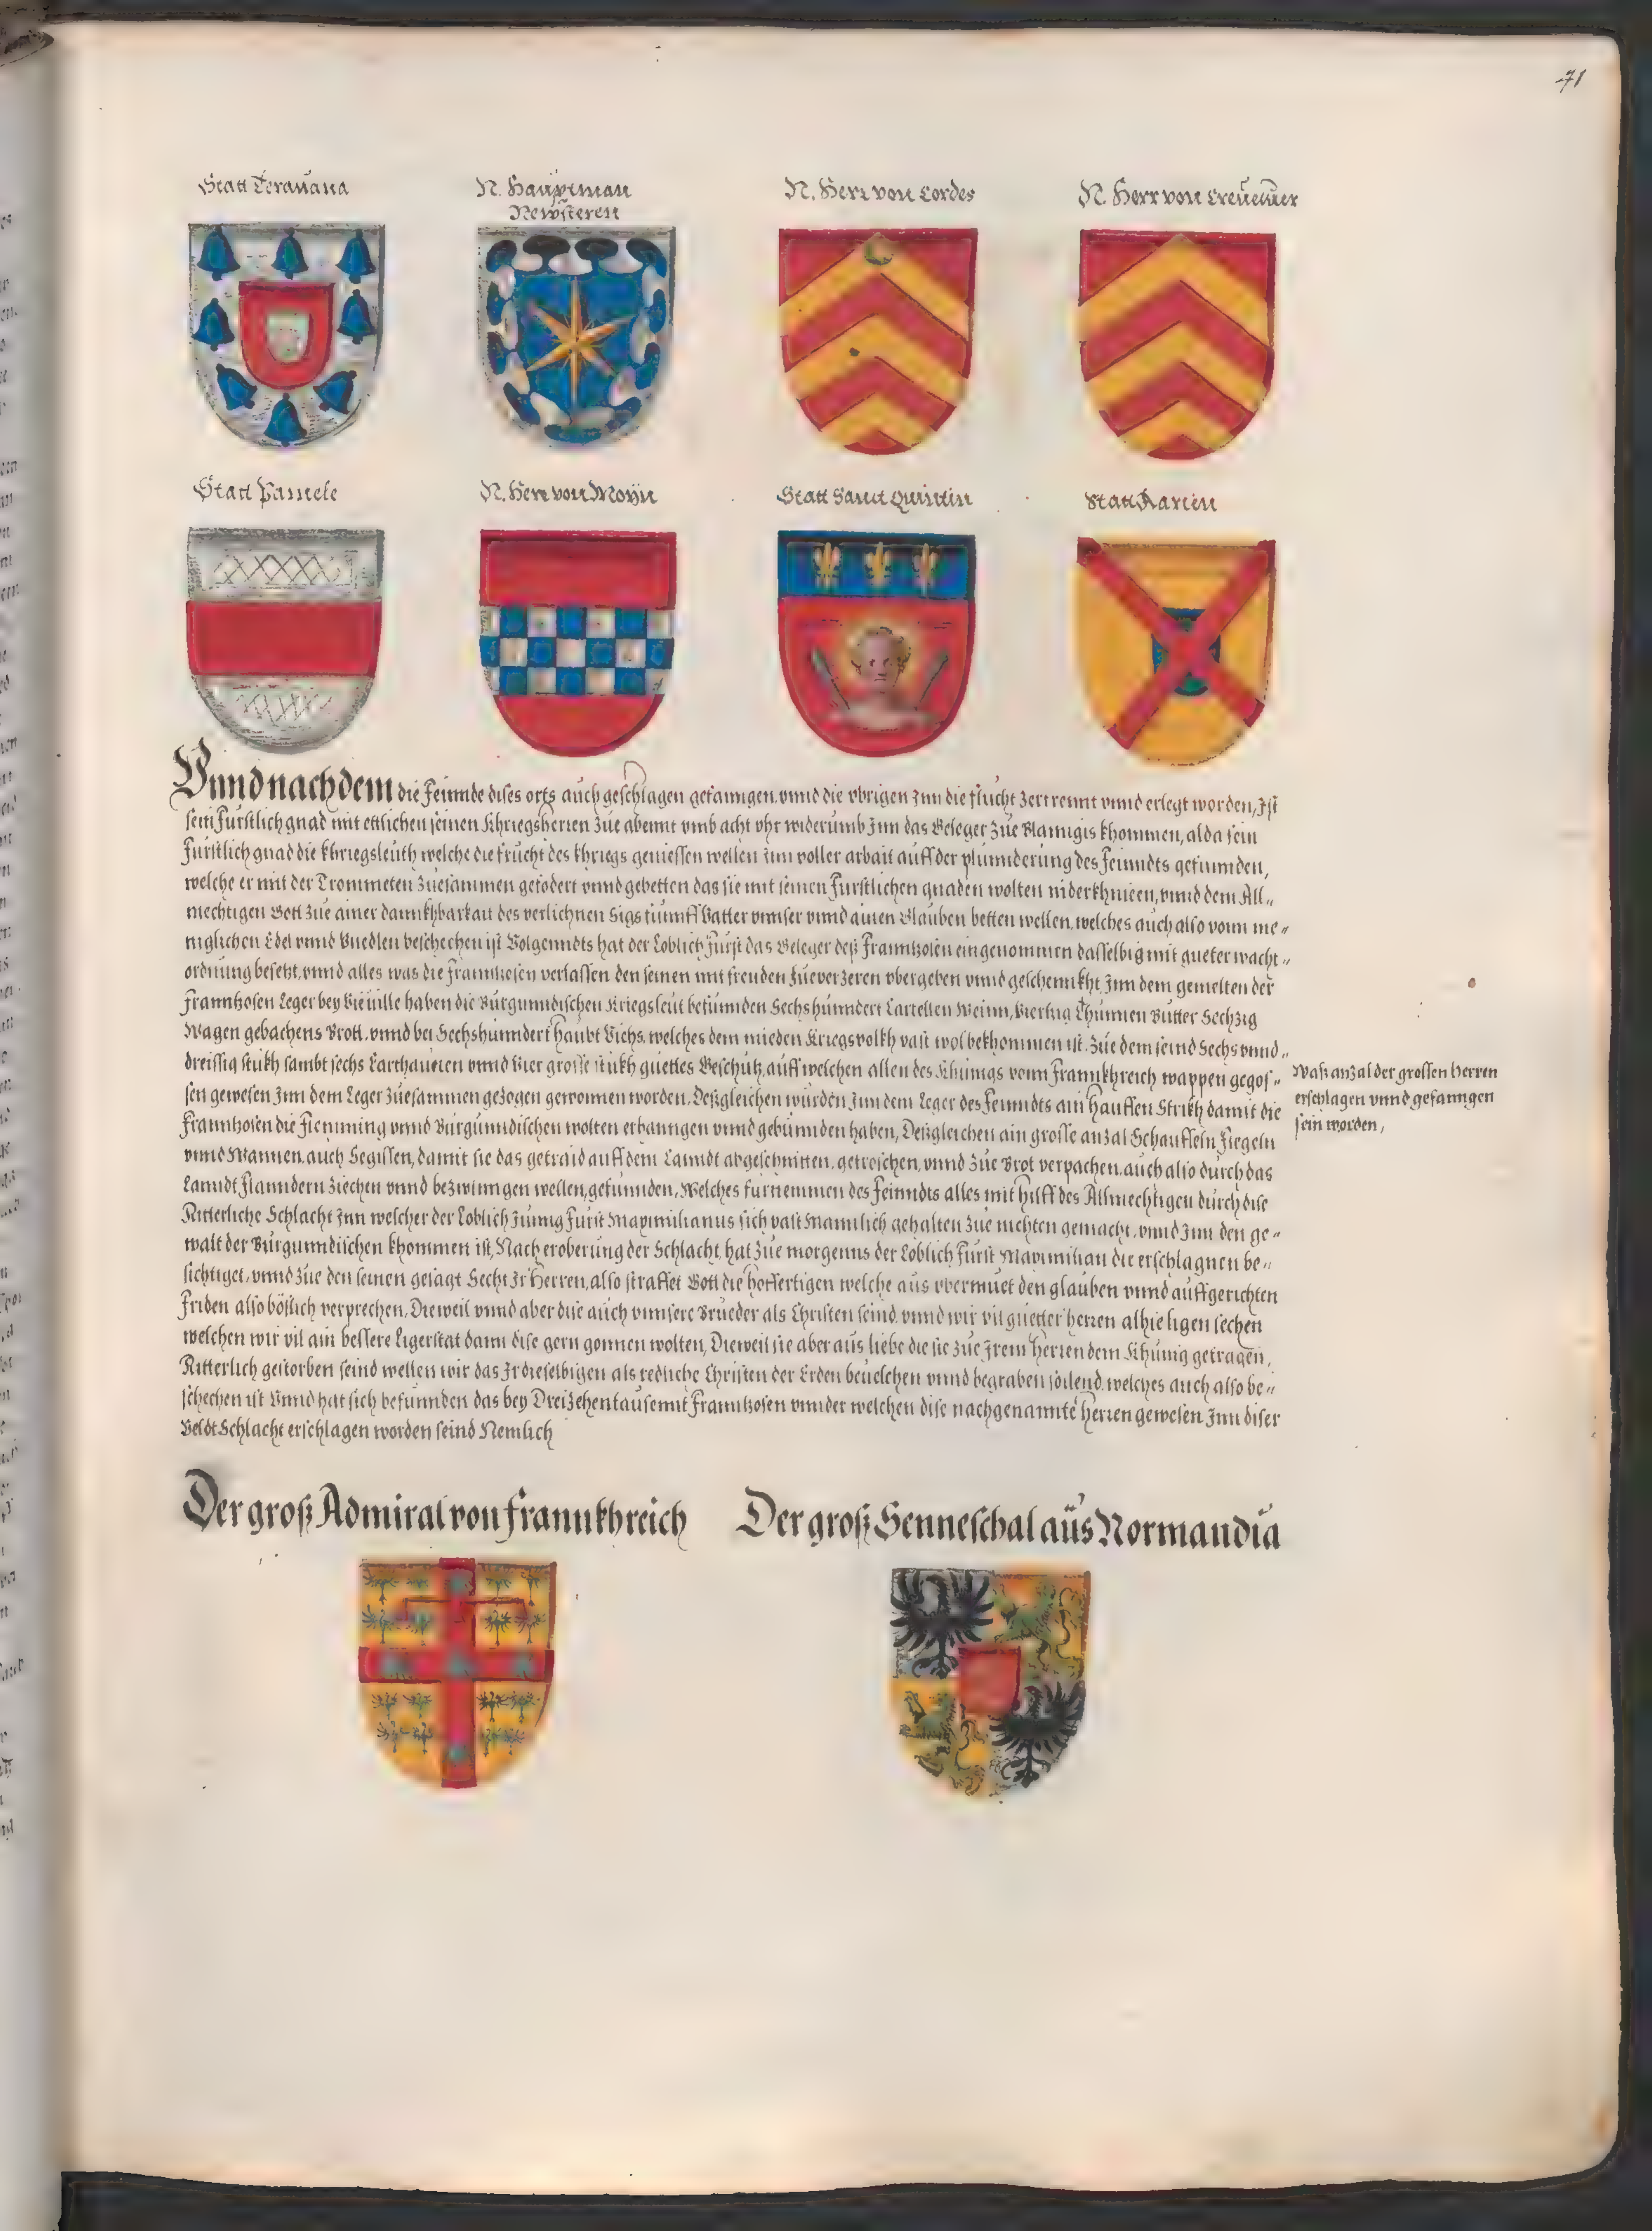 71
Statt Terauana
N. Hauptman
Newsteren
N. Herr von Cordes
N. Herr von Creueuer
Statt Pamele
N. Herr von Moÿn
Statt Sanct Quintin
Statt Narien
Vnnd nachdem die Feinnde dises orts auch geschlagen gefanngen, vnnd die vbrigen Inn die flucht zertrennt vnnd erlegt worden, Ist
sein Fürstlich gnad mit ettlichen seinen Khriegsherren zue abennt vmb acht vhr widerumb Inn das Geleger zue Blamigis khommen, alda sein
Fürstlich gnad die khriegsleuth welche die frücht des khriegs geniessen wellen Inn voller arbait auff der plünnderung des Feinndts gefunnden,
welche er mit der Trommeten zuesammen gefodert vnnd gebetten das sie mit seinen Fürstlichen gnaden wolten niderkhnieen, vnnd dem All„
mechtigen Gott zue ainer dannkhbarkait des verlichnen Sigs fünnff Vatter vnnser vnnd ainen Glauben betten wellen, welches auch also vonn me„
niglichen Edel vnnd Vnedlen beschechen ist Volgenndts hat der Loblich Fürst das Geleger deß Frannkosen eingenommen dasselbig mit gueter wacht„
ordnung besetzt, vnnd alles was die Frannkosen verlassen den seinen mit freuden zueverzeren vbergeben vnnd geschennkht, Inn dem gemelten der
Franntzosen Leger bey Vieuille haben die Burgunndischen Kriegsleut befunnden Sechshunndert Cartellen Weinn, Viertzig Thunnen Butter Sechzig
Wagen gebachens Brott, vnnd bei Sechshunndert haubt Vichs, welches dem mieden Kriegsvolkh vast wol bekhommen ist. Zue dem seind Sechs vnnd„
dreissig stukh sambt sechs Carthaunen vnnd Vier grosse stukh guettes Geschütz, auff welchen allen des Khünigs vonn Frannkhreich wappen gegos„
sen gewesen Inn dem Leger zuesammen gezogen gewonnen worden, Deßgleichen wurden Inn dem Leger des Feinndts ain hauffen Strikh damit die
Franntzosen die Flemming vnnd Burgunndischen wolten erhanngen vnnd gebunnden haben, Deßgleichen ain grosse anzal Schauffeln Fiegeln
vnnd Wannen, auch Segissen, damit sie das getraid auff dem Lanndt abgeschnitten, getroschen, vnnd zue Brot verpachen, auch also durch das
Lanndt Flanndern ziechen vnnd bezwinngen wellen, gefunnden, Welches furnemmen des Feinndts alles mit hilff des Allmechtigen durch dise
Ritterliche Schlacht Inn welcher der Loblich Junng Fürst Maximilianus sich vast Mannlich gehalten zue nichten gemacht, vnnd Inn den ge„
walt der Burgunndischen khommen ist, Nach eroberung der Schlacht, hat zue morgenns der Loblich Fürst Maximilian die erschlagnen be„
sichtiget, vnnd zue den seinen gesagt Secht Ir Herren, also straffet Gott die hoffertigen welche aus vbermuet den glauben vnnd auffgerichten
Friden also böslich verprechen, Dieweil vnnd aber dise auch vnnsere Brueder als Christen seind, vnnd wir vil guetter herren alhie ligen sechen
welchen wir vil ain bessere Ligerstat dann dise gern gonnen wolten, Dieweil sie aber aus liebe die sie zue Irem herren dem Khünig getragen,
Ritterlich gestorben seind wellen wir das Ir dieselbigen als redliche Christen der Erden beuelchen vnnd begraben sollend, welches auch also be„
schechen ist Vnnd hat sich befunnden das bey Dreizehentausennt Franntzosen vnnder welchen dise nachgenannte herren gewesen Inn diser
Veldt Schlacht erschlagen worden seind Nemlich
Was anzal der grossen herren
erschlagen vnnd gefanngen
sein worden,
Der groß Admiral von Frannkhreich
Der groß Senneschal aüs Normandia